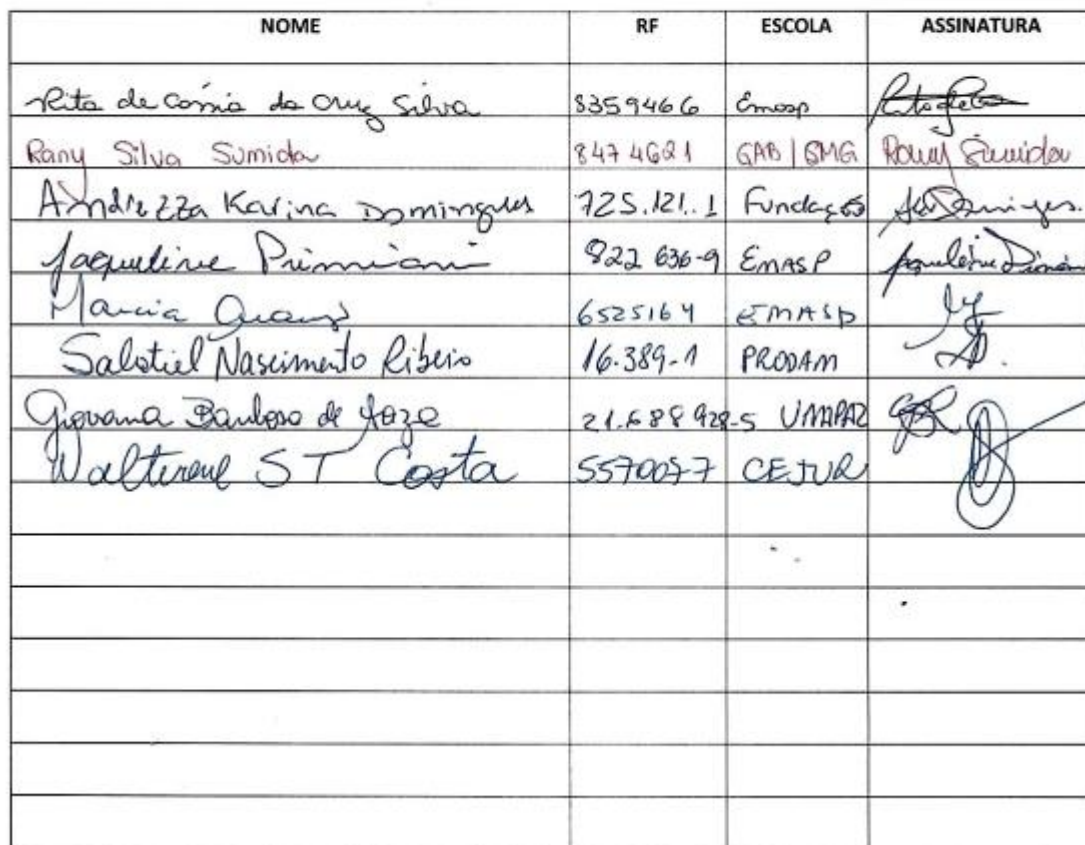 NOME RF ESCOLA ASSINATURA
Rita de Cassia da Cruz Silva 8359466 Emasp
Rany Silva Sumida 8474621 GAB/SMG Rany Sumida
Andrezza Karina Domingues 725.121.1 Fundação
Jaqueline Primiani 822 636-9 EMASP Jaqueline
Marcia 6525164 EMASP
Salatiel Nascimento Ribeiro 16.389-1 PRODAM
Giovana Barbosa de 21.688928-5 UMAPAZ
ST Costa 5570077 CEJUR